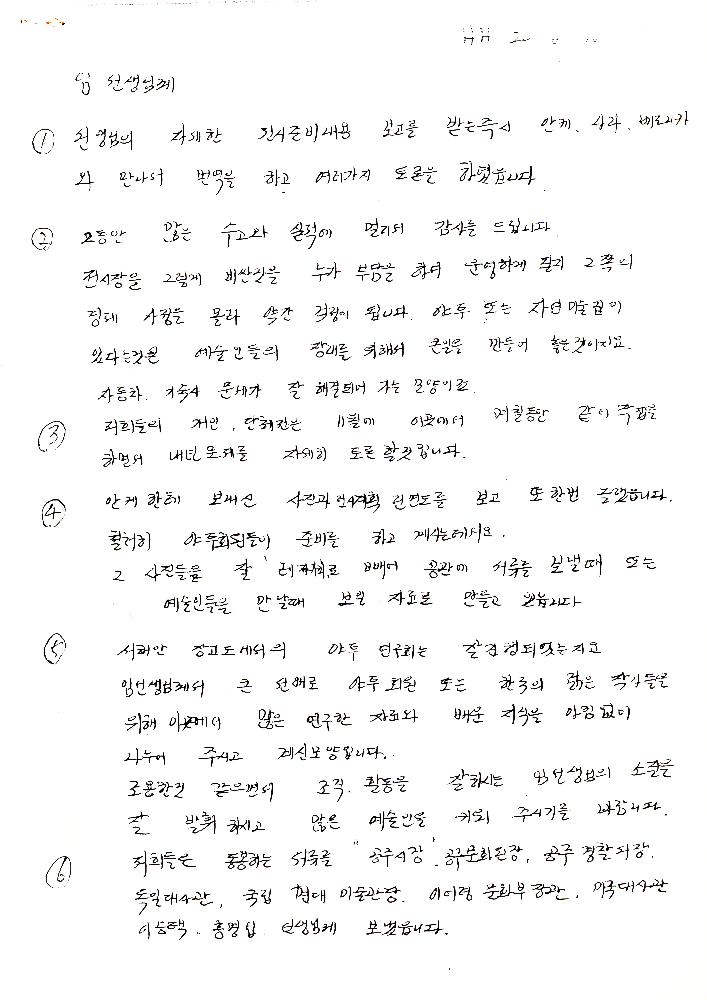 임 선생님께
① 선생님의 자세한 전시준비내용 보고를 받는즉시 안케, 상라, 베로니카
와 만나서 번역을 하고 여러가지 토론을 하였습니다.
② 그동안 많은 수고와 실력에 멀리서 감사를 드립니다.
전시장을 그렇게 비싼것을 누가 부담을 하며 운영하게 될지 그쪽의
형태 사정을 몰라 약간 걱정이 됩니다. 야투 또는 자연미술집이
있다는것은 예술인들의 장래를 위해서 큰일을 만들어 놓는것이지요.
자동차. 기숙사 문제가 잘 해결되어 가는 모양이죠.
③ 저희들의 개인, 단체전는 11월에 이곳에서 며칠동안 같이 죽점을
하면서 내년문제를 자세히 토론할것입니다.
④ 안케한테 보내신 사진과 전시계획 팜연도를 보고 또한번 놀랬습니다.
철저히 야투회원들이 준비를 하고 계시는데서요.
그 사진들을 잘 레이저로 빼어 공관에 서류를 보낼때 또는
예술인들을 만날때 보일 자료로 만들고 있습니다
⑤ 서해안 장고도에서의 야투 연구회는 잘 진행되었는지요
임선생님께서 큰 선배로 야투 회원 또는 한국의 젊은 작가들을
위해 이곳에서 많은 연구한 자료와 배운 지식을 아낌없이
나누어 주시고 계신모양입니다..
조용한것 같으면서 조직. 활동을 잘하시는 임선생님의 소질을
잘 발휘 하시고 많은 예술인을 키워 주시기를 바랍니다.
⑥ 저희들은 동봉하는 서류를 "공주시장" 공주문화원장, 공주 경찰서장,
독일대사관, 국립 현대 미술관장. 이어령 문화부 장관, 미국대사관
이승택. 홍명섭 선생님께 보냈습니다.